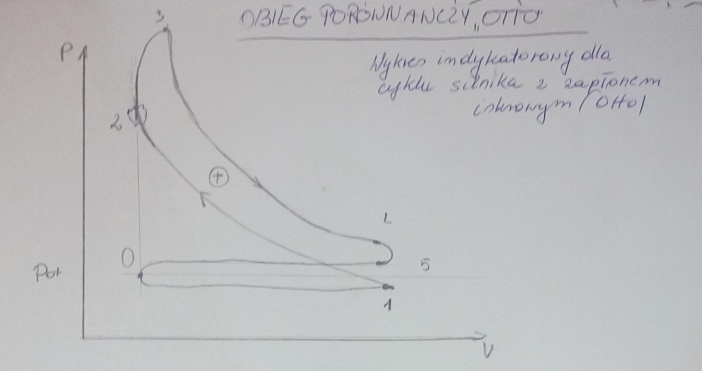 OBIEG PORÓWNAWCZY „OTTO"
Wykres indykatorowy dla
cyklu silnika z zapłonem
iskrowym (Otto)
3
P
2
+
L
0
5
Pot
1
V